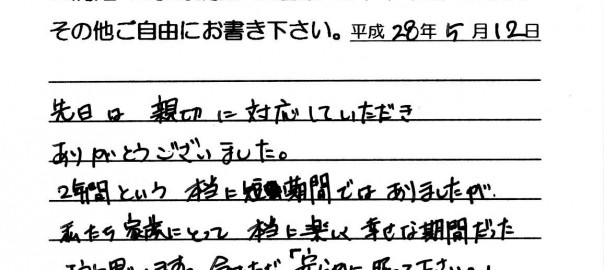 その他ご自由にお書き下さい。平成28年5月12日
先日は 親切に対応していただき
ありがとうございました。
2年間という 本当に短期間ではありましたが、
私たち家族にとって 本当に楽しく幸せな期間だった